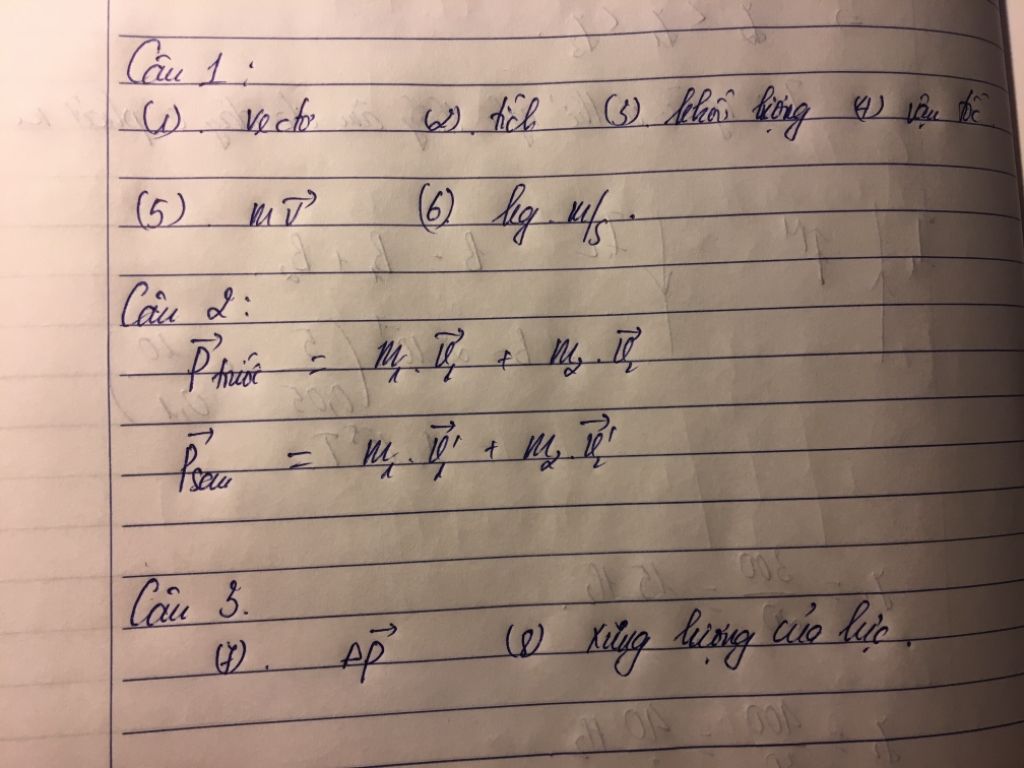 Câu 1 :
(1). vectơ (2). tích (3). khối lượng (4) vận tốc
(5). m\vec{v} (6). kg. m/s.
Câu 2:
\vec{P}_{trước} = m_1.\vec{v}_1 + m_2.\vec{v}_2
\vec{P}_{sau} = m_1.\vec{v}_1' + m_2.\vec{v}_2'
Câu 3.
(7). Δ\vec{p} (8) xung lượng của lực.